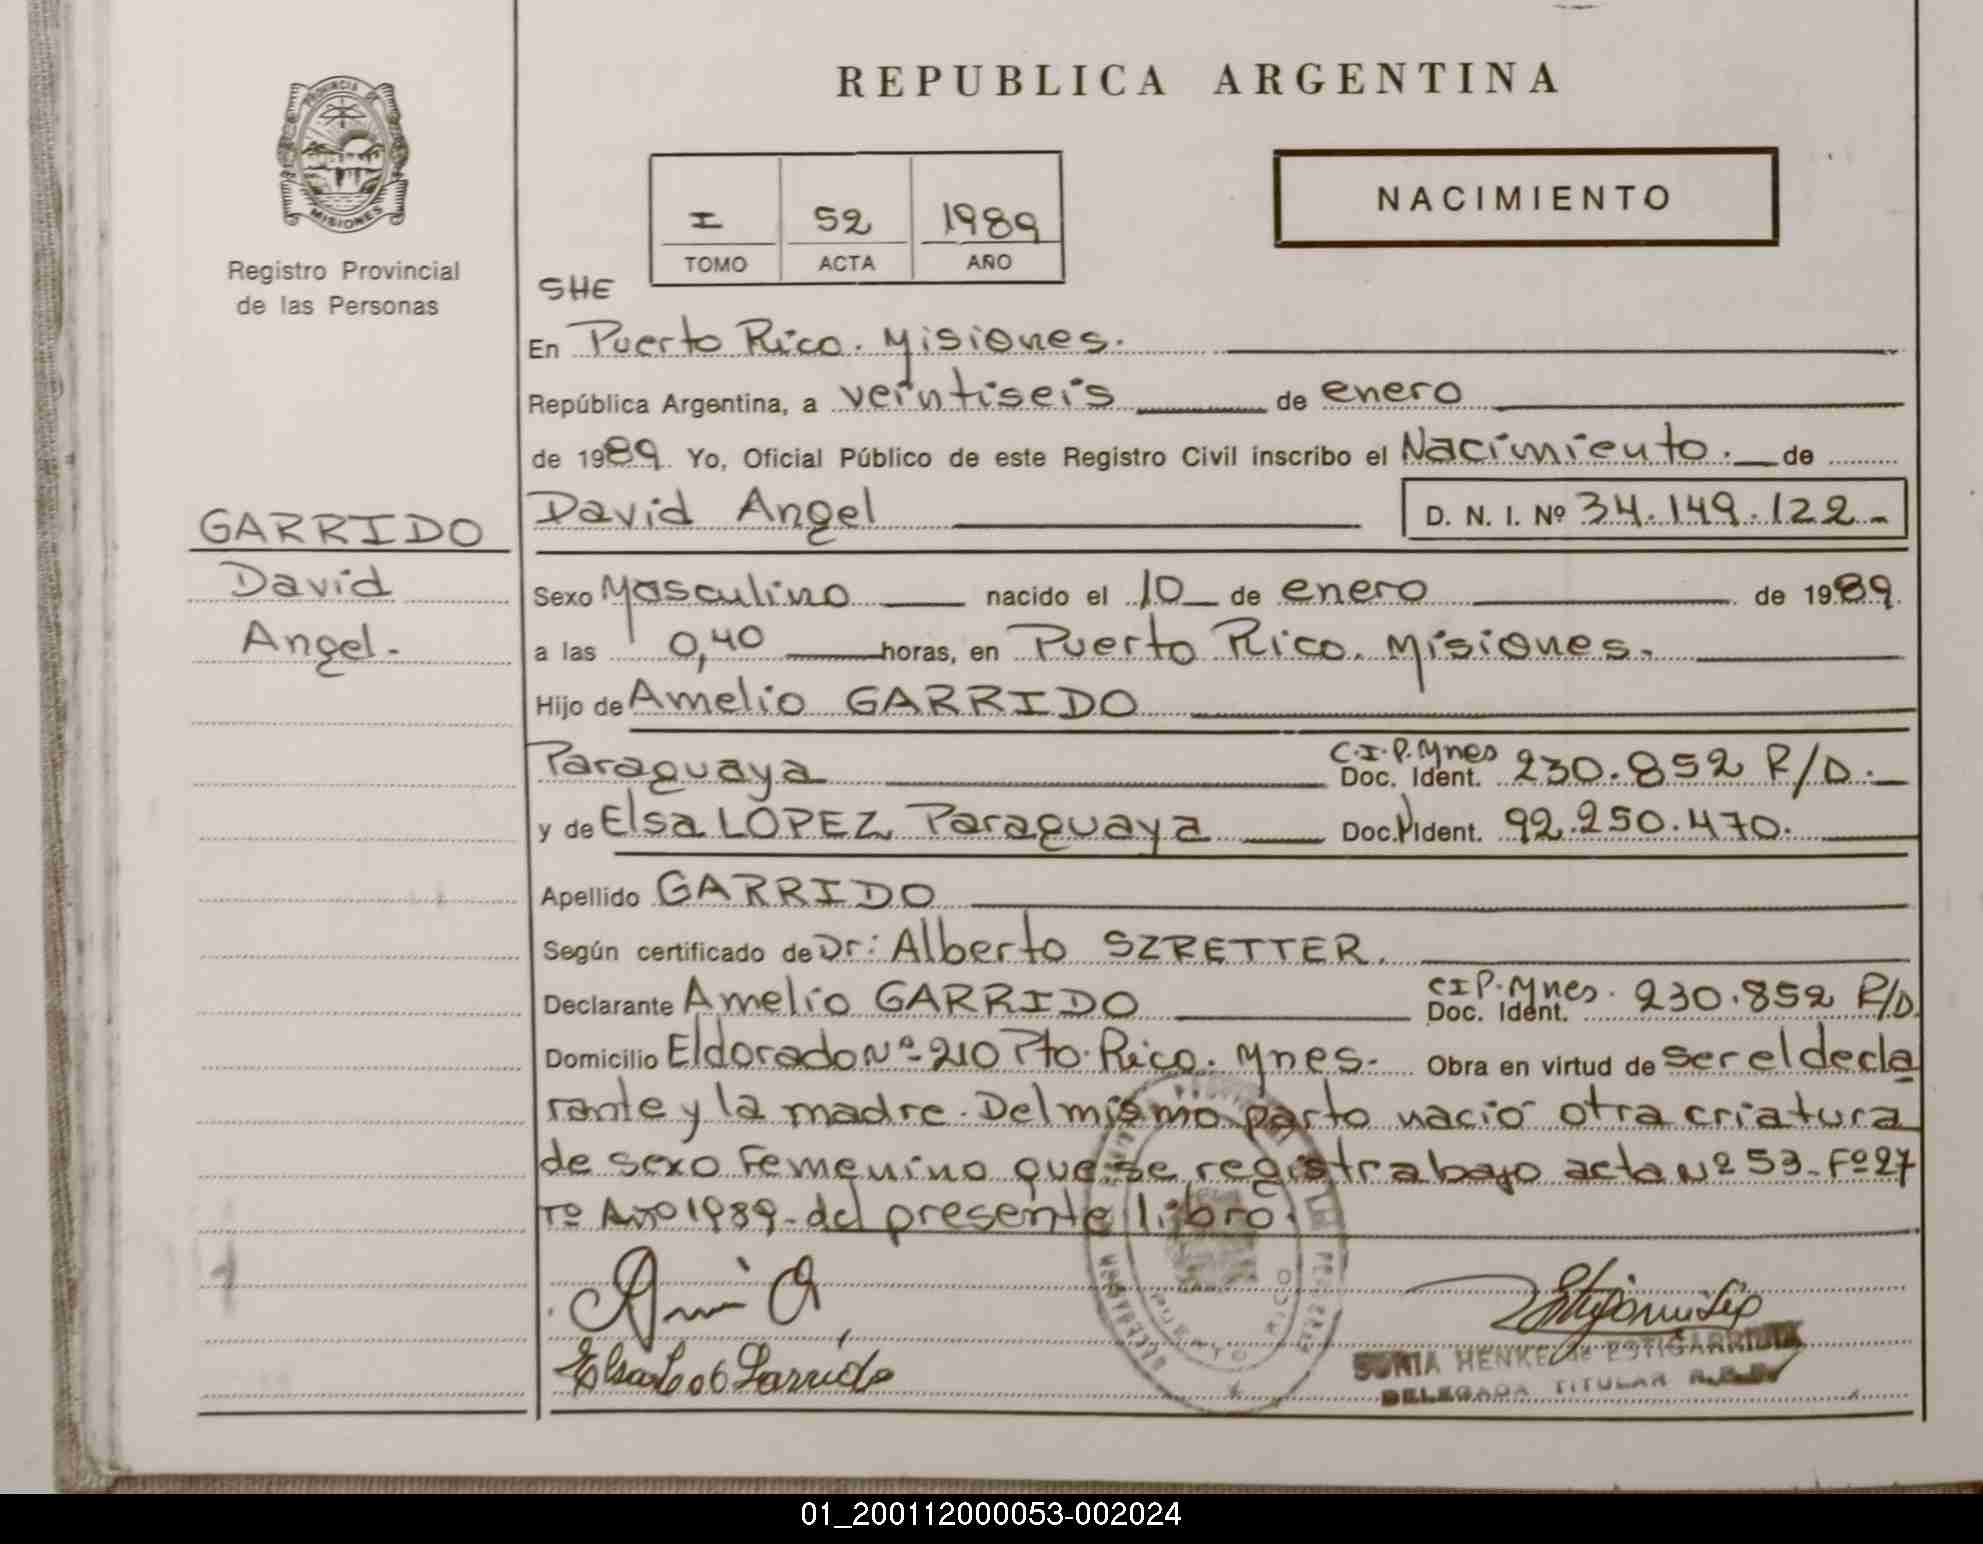 REPUBLICA ARGENTINA
PROVINCIA DE
MISIONES
Registro Provincial
de las Personas
I 52 1989
TOMO ACTA AÑO
NACIMIENTO
SHE
En Puerto Rico. Misiones.
República Argentina, a veintiseis de enero
de 1989. Yo, Oficial Público de este Registro Civil inscribo el Nacimiento. de
David Angel D. N. I. Nº 34.149.122-
GARRIDO
David
Angel.-
Sexo Masculino nacido el 10 de enero de 1989.
a las 0,40 horas, en Puerto Rico. Misiones.
Hijo de Amelio GARRIDO
Paraguaya C.I.P.Mnes Doc. Ident. 230.852 R/D.
y de Elsa LOPEZ Paraguaya Doc. Ident. 92.250.470.
Apellido GARRIDO
Según certificado de Dr: Alberto SZRETTER.
Declarante Amelio GARRIDO CIP.Mnes. Doc. Ident. 230.852 R/D.
Domicilio Eldorado Nº 210 Pto. Rico. Mnes. Obra en virtud de ser el decla
rante y la madre. Del mismo parto nació otra criatura
de sexo Femenino que se registra bajo acta Nº 53-Fº27
Tº Año 1989-del presente libro.
SONIA HENKE de ESTIGARRIBIA
DELEGADA TITULAR
PUERTO RICO
01_200112000053-002024